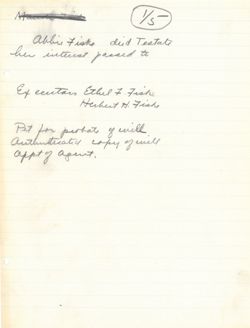 1/5
Abbie Fiske died Testate
her interest passed to
Executors Ethel F Fiske
Herbert H. Fiske
Pet for probate of will
Authenticated copy of will
Appt of Agent.